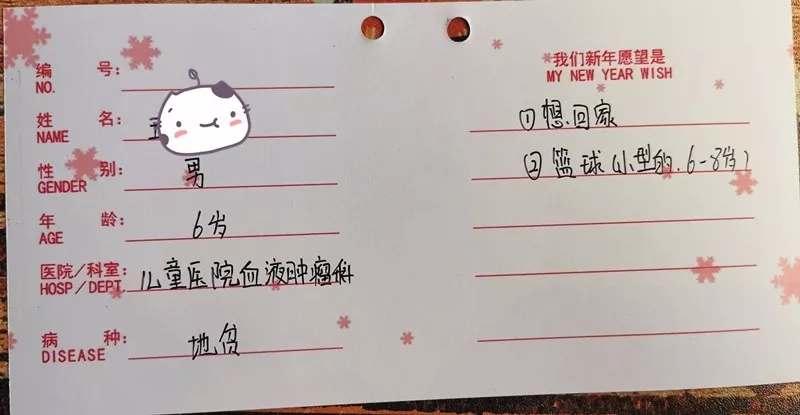 编 号:
NO.
姓 名:
NAME
性 别: 男
GENDER
年 龄: 6岁
AGE
医院/科室: 儿童医院血液肿瘤科
HOSP/DEPT.
病 种: 地贫
DISEASE
我们新年愿望是
MY NEW YEAR WISH
①想回家
②篮球(小型的.6-8岁)